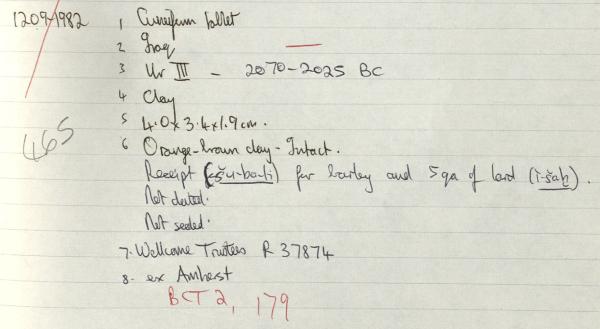 1209-1982 1 Cuneiform tablet
2 Iraq
3 Ur III - 2070-2025 BC
4 Clay
5 4.0 x 3.4 x 1.9 cm.
465
6 Orange-brown clay - Intact.
Receipt (šu-ba-ti) for barley and 5 qa of lard (ì-šaḫ).
Not dated.
Not sealed.
7. Wellcome Trustees R 37874
8. ex Amherst
BCT 2, 179